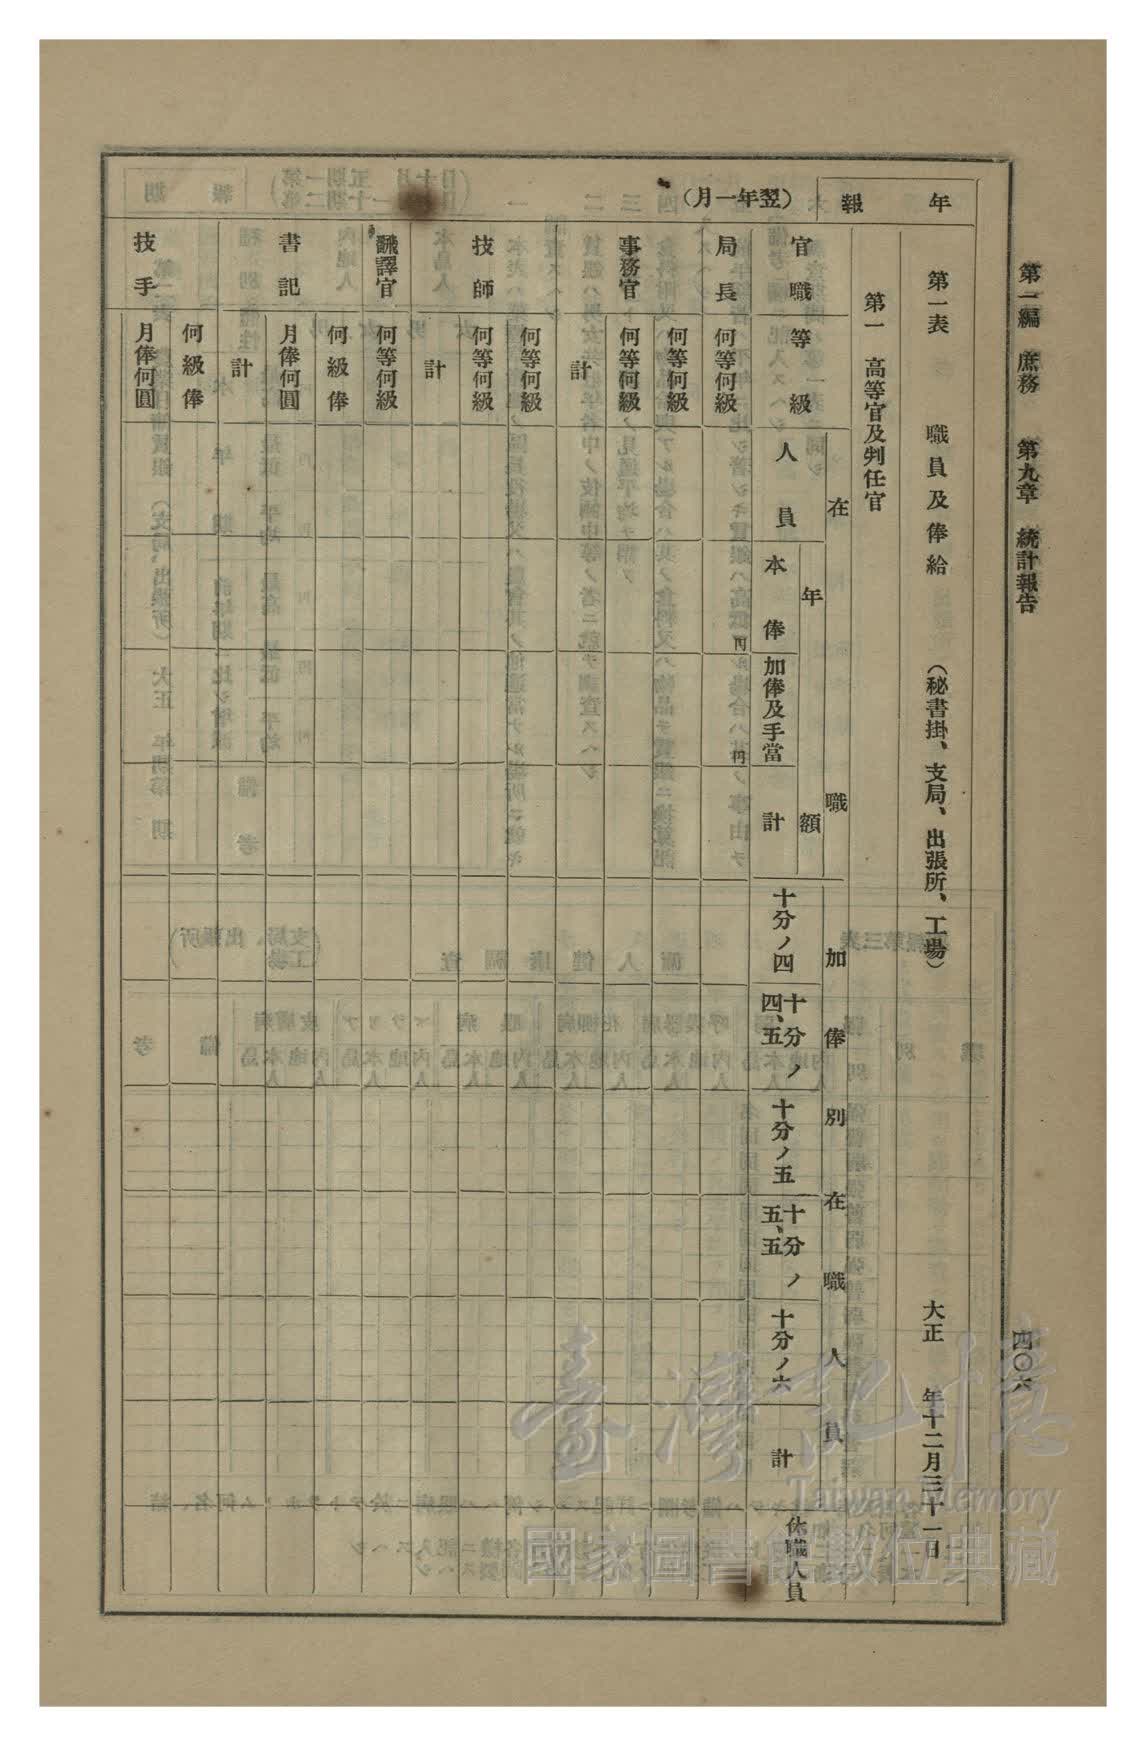 第二編　庶務　　第九章　統計報告
四〇六
年報
（翌年一月）
第一表　　職員及俸給　　（秘書掛、支局、出張所、工場）　　大正　　年十二月三十一日
第一　高等官及判任官
官職
等級
在職
人員
年額
本俸
加俸及手當
計
加俸別在職人員
十分ノ四
十分ノ四、五
十分ノ五
十分ノ五、五
十分ノ六
計
休職人員
局長
何等何級
円
円
事務官
何等何級
何等何級
計
技師
何等何級
何等何級
計
飜譯官
何等何級
書記
何級俸
月俸何圓
計
技手
何級俸
月俸何圓
臺灣記憶
Taiwan Memory
國家圖書館數位典藏